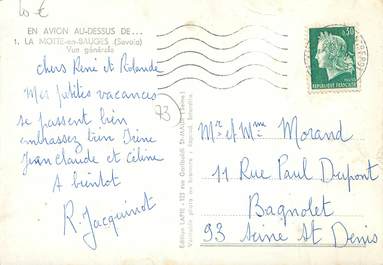 10 €
EN AVION AU-DESSUS DE...
1. LA MOTTE-en-BAUGES (Savoie)
Vue générale
chers René et Rolande
Mes petites vacances
se passent bien
embrassez bien Irène
Jean Claude et Céline
A bientôt
R. Jacquinot
73
Edition LAPIE - 123 rue Garibaldi St-MAUR (Seine)
Véritable photo au bromure - Reprod. Interdite
0,30
REPUBLIQUE FRANÇAISE
Mr et Mme Morand
11 Rue Paul Dupont
Bagnolet
93 Seine St Denis